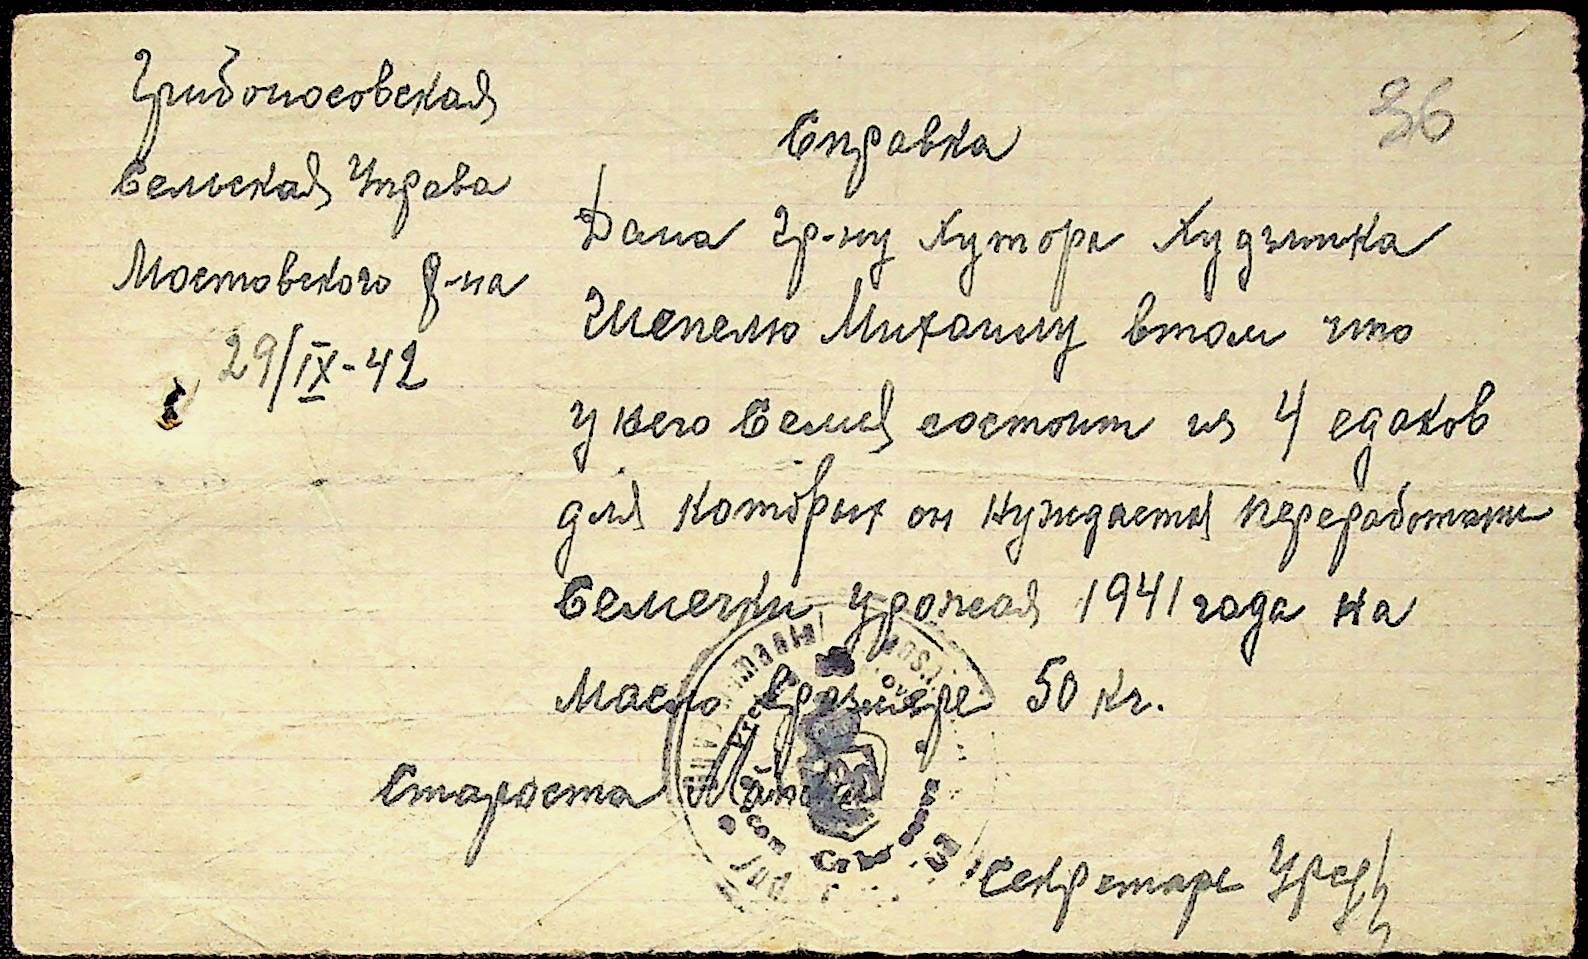 Грибоносовская
Сельская Управа
Мостовского р-на
29/IX-42
36
Справка
Дана гр-ну Хутора
Шепелю Михаилу втом что
у него Семья состоит из 4 едоков
для которых он нуждается переработати
Семечки урожая 1941 года на
масло вразмере 50 кг.
Староста
Секретарь